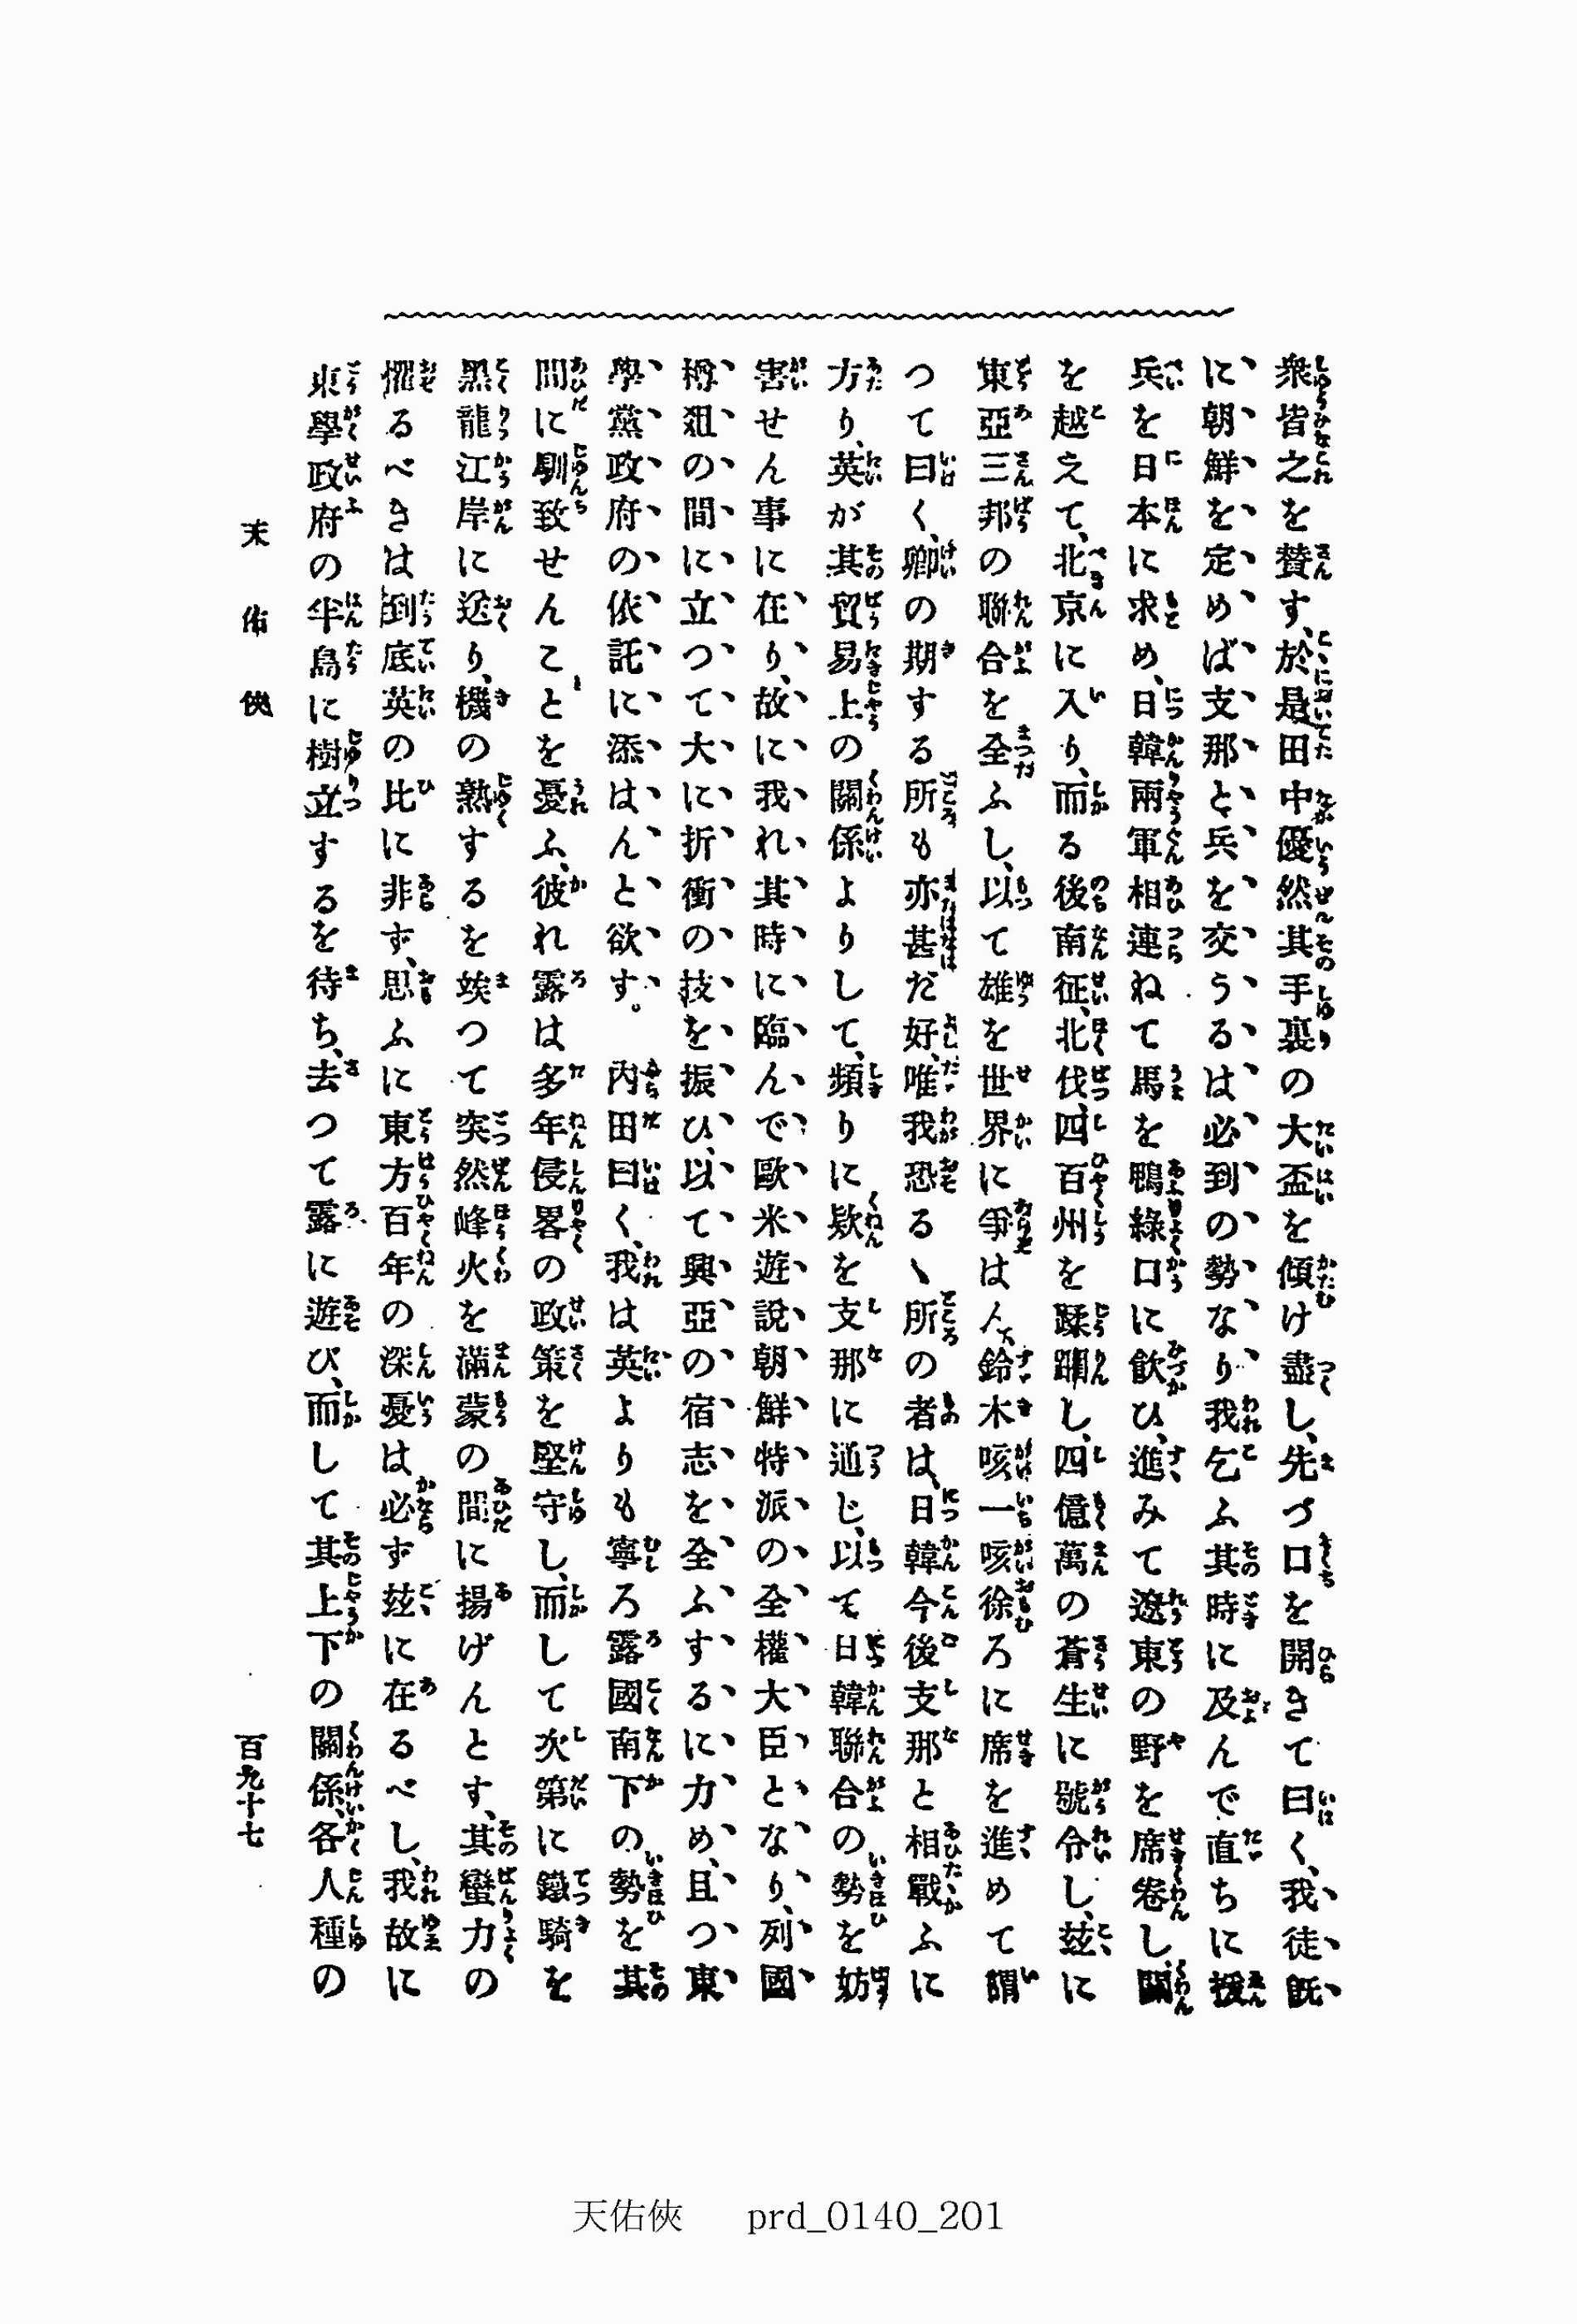 衆皆之を賛す、於是田中優然其手裏の大盃を傾け盡し、先づ口を開きて曰く、我徒既
に朝鮮を定めば支那と兵を交うるは必到の勢なり我乞ふ其時に及んで直ちに援
兵を日本に求め、日韓兩軍相連ねて馬を鴨綠口に飮ひ、進みて遼東の野を席卷し、關
を越えて、北京に入り、而る後南征、北伐、四百州を蹂躙し、四億萬の蒼生に號令し、玆に
東亞三邦の聯合を全ふし、以て雄を世界に爭はん、鈴木咳一咳徐ろに席を進めて謂
つて曰く、卿の期する所も亦甚だ好、唯我恐るゝ所の者は、日韓今後支那と相戰ふに
方り、英が其貿易上の關係よりして、頻りに欵を支那に通じ、以て日韓聯合の勢を妨
害せん事に在り、故に我れ其時に臨んで歐米遊說朝鮮特派の全權大臣となり、列國
樽爼の間に立つて大に折衝の技を振ひ、以て興亞の宿志を全ふするに力め、且つ東
學黨政府の依託に添はんと欲す。內田曰く、我は英よりも寧ろ露國南下の勢を其
間に馴致せんことを憂ふ、彼れ露は多年侵畧の政策を堅守し、而して次第に鐵騎を
黑龍江岸に送り、機の熟するを竢つて突然峰火を滿蒙の間に揚げんとす、其蠻力の
懼るべきは到底英の比に非ず、思ふに東方百年の深憂は必ず玆に在るべし、我故に
東學政府の半島に樹立するを待ち、去つて露に遊び、而して其上下の關係、各人種の
天佑俠
百九十七
天佑俠 prd_0140_201